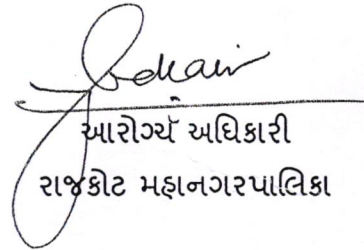 આરોગ્ય અધિકારી
રાજકોટ મહાનગરપાલિકા